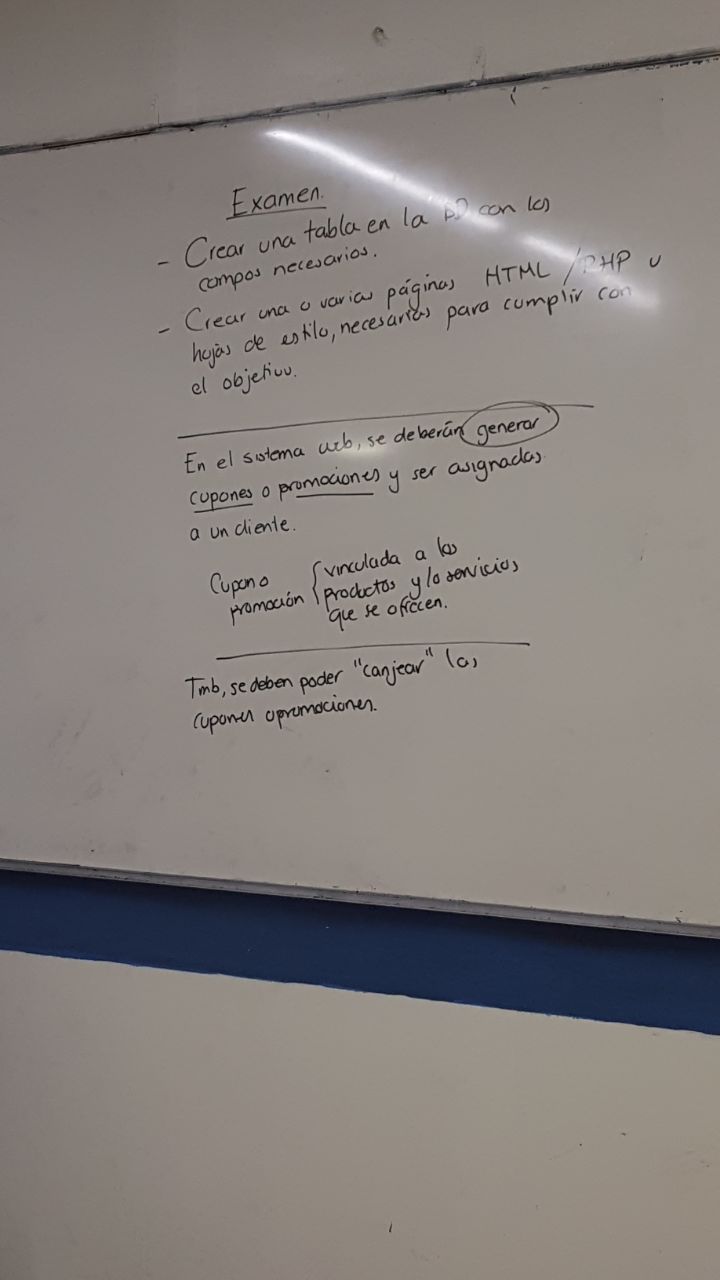 Examen.
- Crear una tabla en la BD con los
campos necesarios.
- Crear una o varias páginas HTML / PHP u
hojas de estilo, necesarias para cumplir con
el objetivo.
En el sistema web, se deberán generar
cupones o promociones y ser asignadas
a un cliente.
Cupon o
promoción
{ vinculada a los
productos y/o servicios
que se ofrecen.
Tmb, se deben poder "canjear" los
cupones o promociones.